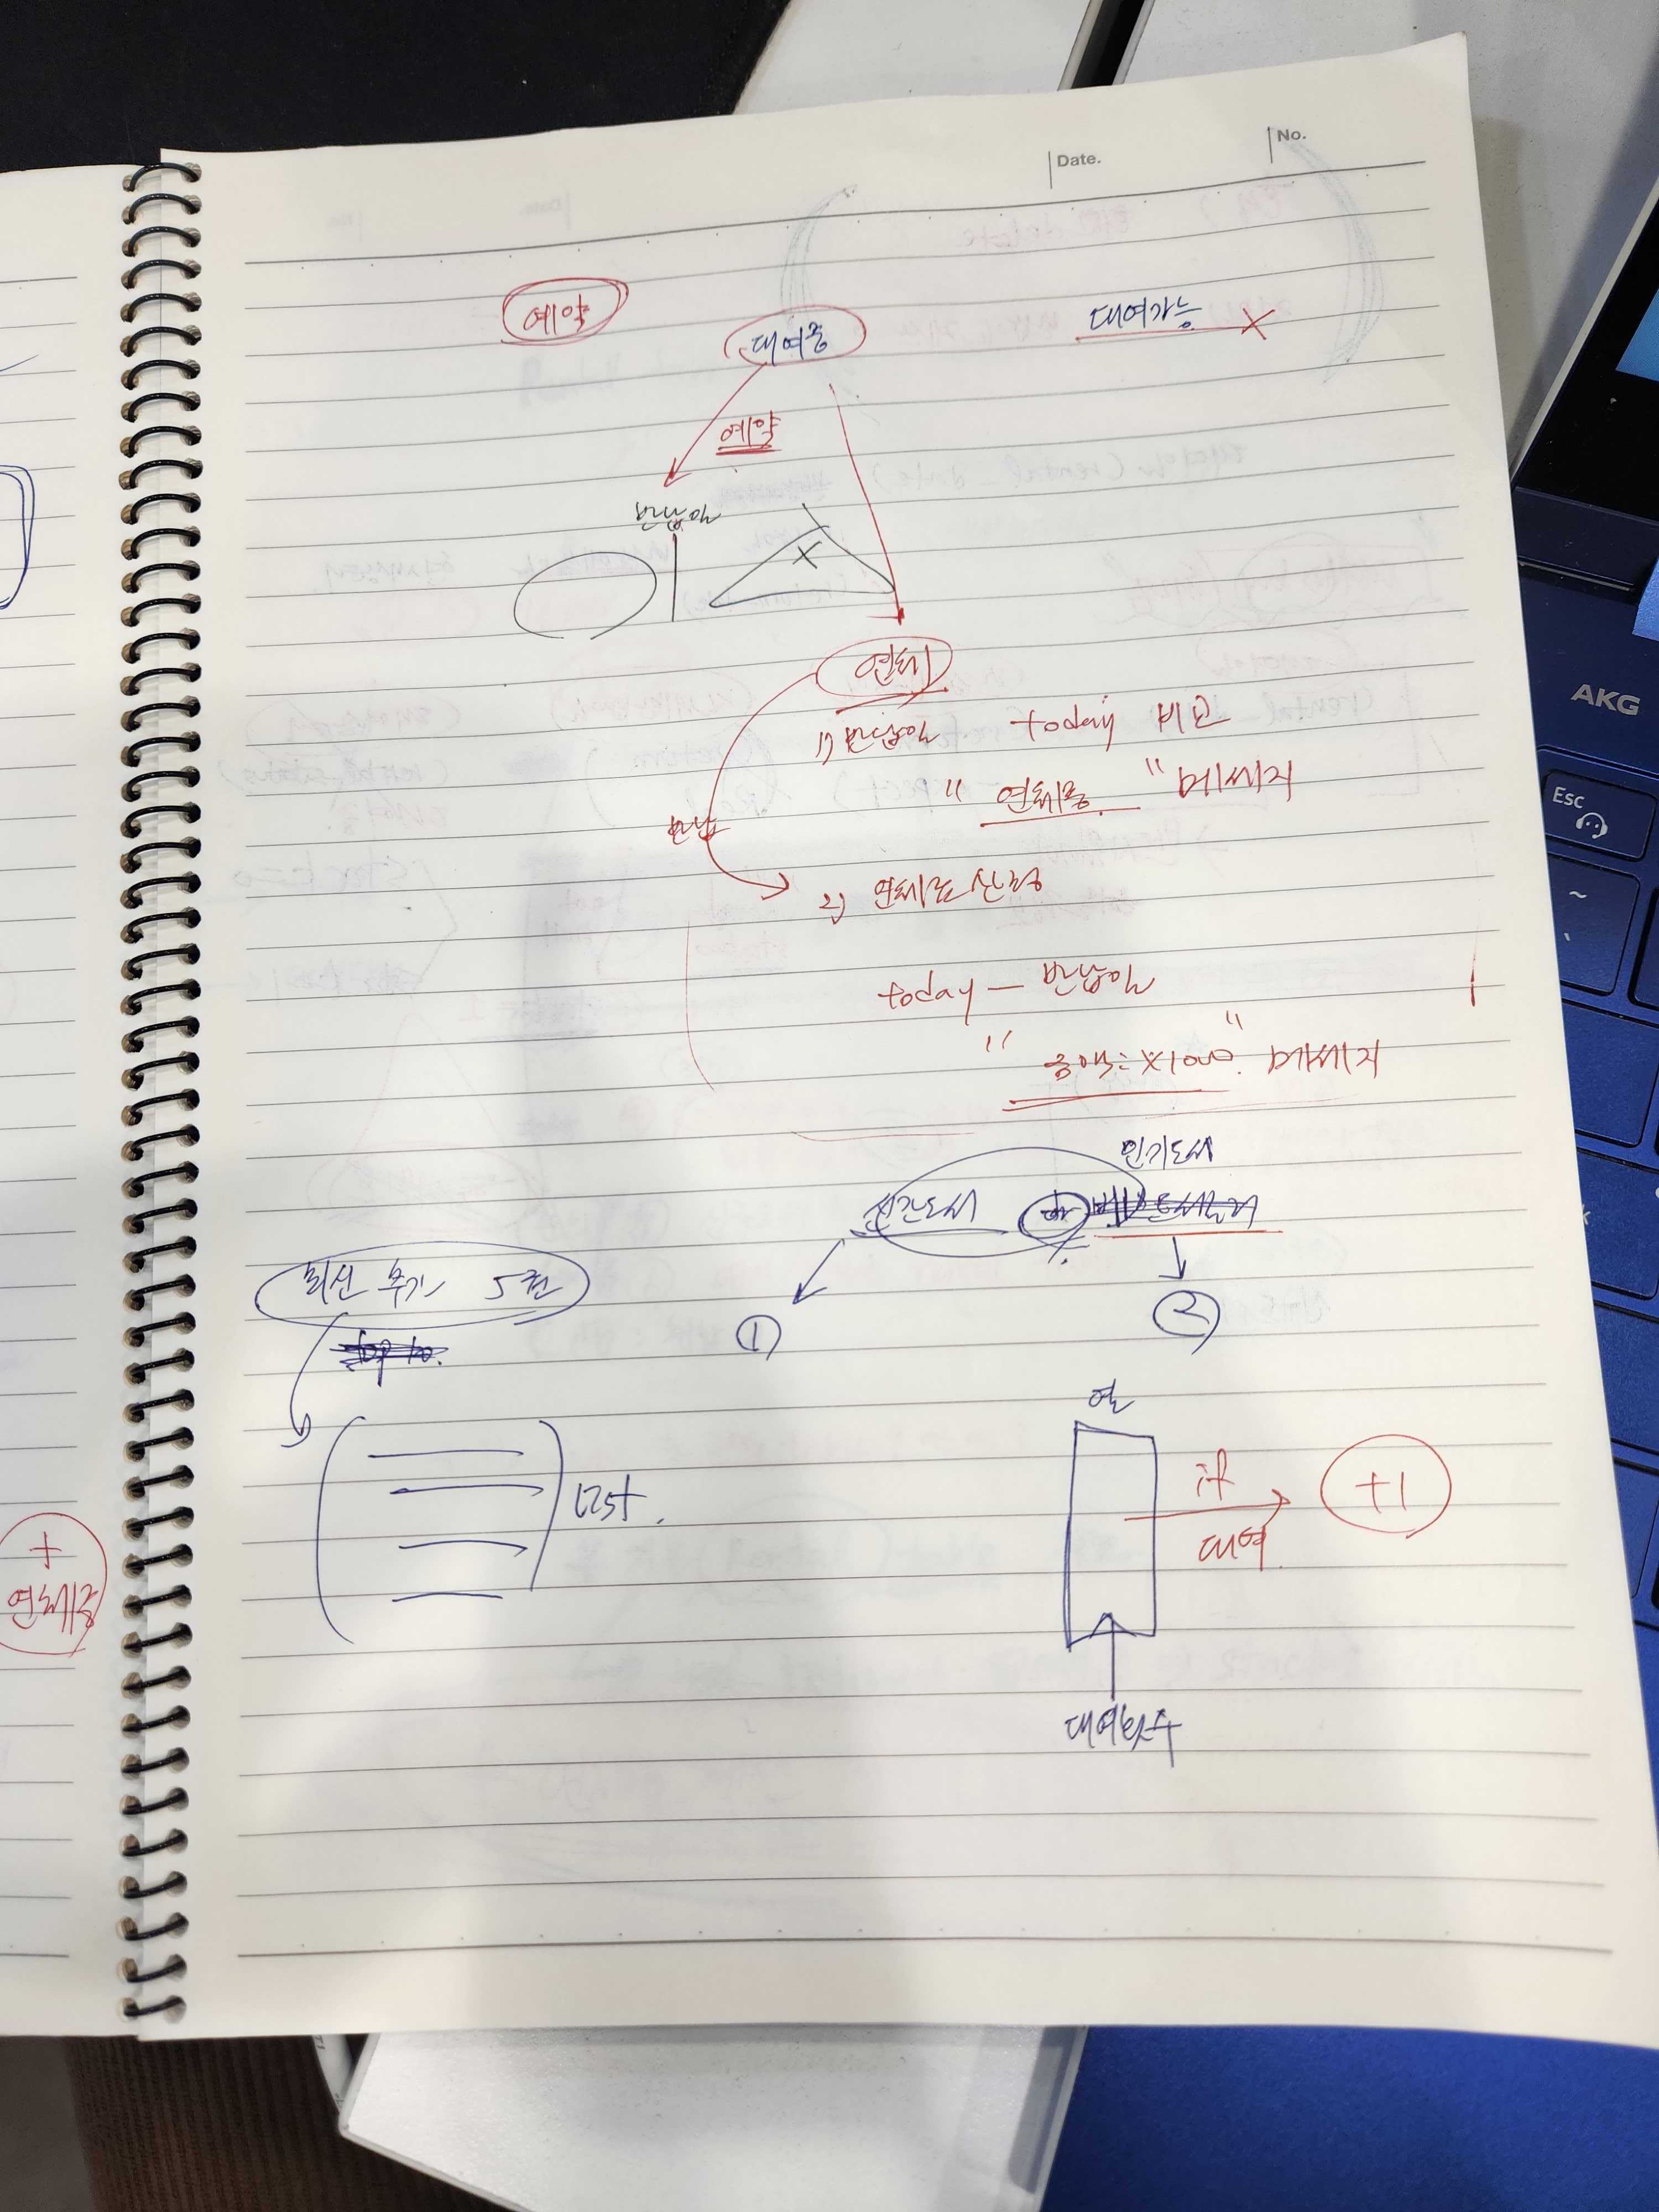 Date.
No.
예약
대여중
대여가능 X
예약
반납일
X
연체
1) 반납일 today 비교
" 연체중 " 메세지
반납
2) 연체료 산정
today — 반납일
" 금액: X1000 " 메세지
인기도서
신간도서
최신 추가 5권
top 10.
①
②
List.
열
if
대여
+1
대여횟수
+
연체중
AKG
Esc
~